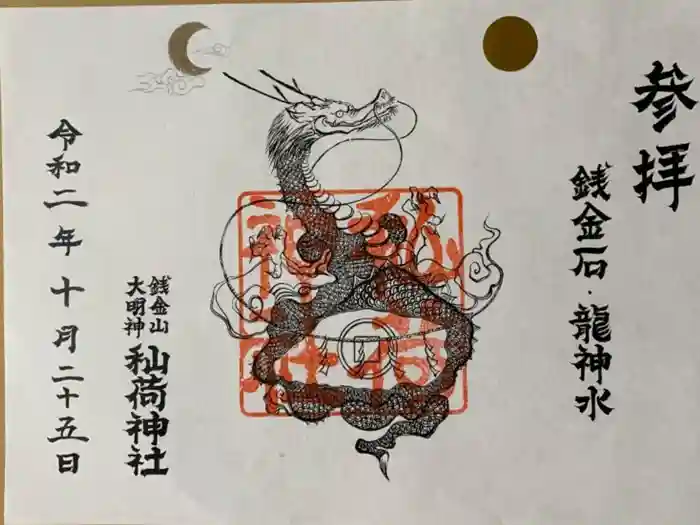 参拝
銭金石・龍神水
銭金山
大明神
秈荷神社
令和二年十月二十五日
秈荷
神社